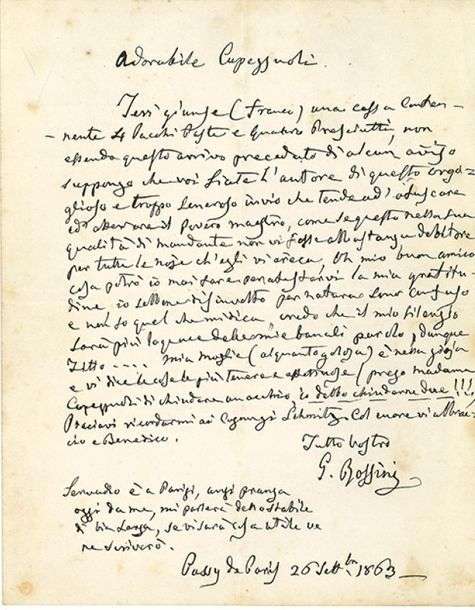 Adorabile Capezzuoli.
Ieri giunse (Franca) una cassa conte-
-nente 4 Pacchi Paste e quattro Presciutti, non
essendo questo arrivo preceduto di alcun avviso
suppongo che voi siate l'autore di questo orgo=
glioso e troppo generoso invio che tende ad' offuscare
ed' atterrare il Povero maestro, come se questo nella sua
qualità di mandante non vi fosse abbastanza debitore
per tutte le noje ch'egli vi arreca. Oh mio buon amico
cosa potrò io mai fare per attestarvi la mia gratitu
dine, io sebbene disinvolto per natura sono confuso
e non so quel che mi dica credo che il mio silenzio
sarà più loquace delle comie banali parole, dunque
Zitto .... mia moglie (alquanto golosa) è nella gioja
e vi dice le cose le più tenere e affettuose (prego madama
Capezzuoli di chiudere un occhio, io debbo chiuderne due!!!
Piacciavi ricordarmi ai Coniugi Schmitz. Col cuore vi abbrac
cio e Benedico.
Tutto Vostro
G. Rossini
Servadio è a Parigi, anzi pranza
oggi da me, mi parlerà dello stabile
di Via Larga, se vi sarà cosa utile ve
ne scriverò.
Passy de Paris 26 Settbre 1863